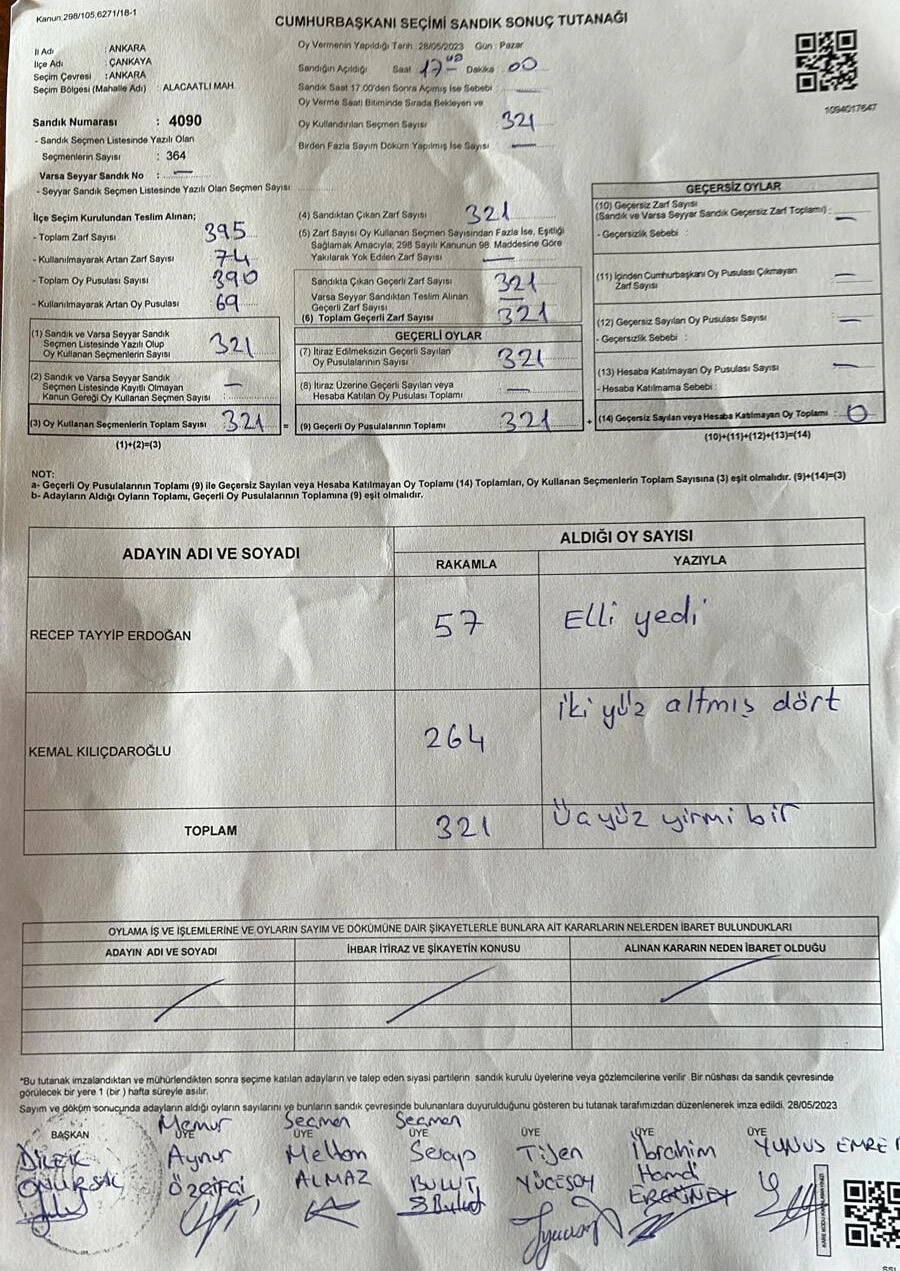 Kanun 298/105,6271/18-1
CUMHURBAŞKANI SEÇİMİ SANDIK SONUÇ TUTANAĞI
İl Adı : ANKARA
İlçe Adı : ÇANKAYA
Seçim Çevresi : ANKARA
Seçim Bölgesi (Mahalle Adı) : ALACAATLI MAH.
Sandık Numarası : 4090
- Sandık Seçmen Listesinde Yazılı Olan
Seçmenlerin Sayısı : 364
Varsa Seyyar Sandık No : —
- Seyyar Sandık Seçmen Listesinde Yazılı Olan Seçmen Sayısı
Oy Vermenin Yapıldığı Tarih : 28/05/2023 Gün : Pazar
Sandığın Açıldığı Saat 17 00 Dakika 00
Sandık Saat 17.00'den Sonra Açılmış İse Sebebi : —
Oy Verme Saati Bitiminde Sırada Bekleyen ve
Oy Kullandırılan Seçmen Sayısı 321
Birden Fazla Sayım Döküm Yapılmış İse Sayısı —
1094017647
İlçe Seçim Kurulundan Teslim Alınan;
- Toplam Zarf Sayısı 395
- Kullanılmayarak Artan Zarf Sayısı 74
- Toplam Oy Pusulası Sayısı 390
- Kullanılmayarak Artan Oy Pusulası 69
(1) Sandık ve Varsa Seyyar Sandık
Seçmen Listesinde Yazılı Olup
Oy Kullanan Seçmenlerin Sayısı 321
(2) Sandık ve Varsa Seyyar Sandık
Seçmen Listesinde Kayıtlı Olmayan
Kanun Gereği Oy Kullanan Seçmen Sayısı : —
(3) Oy Kullanan Seçmenlerin Toplam Sayısı 321 =
(1)+(2)=(3)
(4) Sandıktan Çıkan Zarf Sayısı 321
(5) Zarf Sayısı Oy Kullanan Seçmen Sayısından Fazla İse, Eşitliği
Sağlamak Amacıyla, 298 Sayılı Kanunun 98. Maddesine Göre
Yakılarak Yok Edilen Zarf Sayısı —
Sandıkta Çıkan Geçerli Zarf Sayısı 321
Varsa Seyyar Sandıktan Teslim Alınan
Geçerli Zarf Sayısı —
(6) Toplam Geçerli Zarf Sayısı 321
GEÇERLİ OYLAR
(7) İtiraz Edilmeksizin Geçerli Sayılan
Oy Pusulalarının Sayısı 321
(8) İtiraz Üzerine Geçerli Sayılan veya
Hesaba Katılan Oy Pusulası Toplamı —
(9) Geçerli Oy Pusulalarının Toplamı 321 +
GEÇERSİZ OYLAR
(10) Geçersiz Zarf Sayısı
(Sandık ve Varsa Seyyar Sandık Geçersiz Zarf Toplamı) : —
- Geçersizlik Sebebi :
(11) İçinden Cumhurbaşkanı Oy Pusulası Çıkmayan
Zarf Sayısı —
(12) Geçersiz Sayılan Oy Pusulası Sayısı —
- Geçersizlik Sebebi :
(13) Hesaba Katılmayan Oy Pusulası Sayısı —
- Hesaba Katılmama Sebebi :
(14) Geçersiz Sayılan veya Hesaba Katılmayan Oy Toplamı : 0
(10)+(11)+(12)+(13)=(14)
NOT:
a- Geçerli Oy Pusulalarının Toplamı (9) ile Geçersiz Sayılan veya Hesaba Katılmayan Oy Toplamı (14) Toplamları, Oy Kullanan Seçmenlerin Toplam Sayısına (3) eşit olmalıdır. (9)+(14)=(3)
b- Adayların Aldığı Oyların Toplamı, Geçerli Oy Pusulalarının Toplamına (9) eşit olmalıdır.
ADAYIN ADI VE SOYADI ALDIĞI OY SAYISI
RAKAMLA YAZIYLA
RECEP TAYYİP ERDOĞAN 57 Elli yedi
KEMAL KILIÇDAROĞLU 264 iki yüz altmış dört
TOPLAM 321 Üçyüz yirmi bir
OYLAMA İŞ VE İŞLEMLERİNE VE OYLARIN SAYIM VE DÖKÜMÜNE DAİR ŞİKAYETLERLE BUNLARA AİT KARARLARIN NELERDEN İBARET BULUNDUKLARI
ADAYIN ADI VE SOYADI İHBAR İTİRAZ VE ŞİKAYETİN KONUSU ALINAN KARARIN NEDEN İBARET OLDUĞU
*Bu tutanak imzalandıktan ve mühürlendikten sonra seçime katılan adayların ve talep eden siyasi partilerin sandık kurulu üyelerine veya gözlemcilerine verilir. Bir nüshası da sandık çevresinde
görülecek bir yere 1 (bir) hafta süreyle asılır.
Sayım ve döküm sonucunda adayların aldığı oyların sayılarını ve bunların sandık çevresinde bulunanlara duyurulduğunu gösteren bu tutanak tarafımızdan düzenlenerek imza edildi. 28/05/2023
Memur Seçmen Seçmen
BAŞKAN ÜYE ÜYE ÜYE ÜYE ÜYE ÜYE
DİLEK Aynur Meltem Serap Tijen İbrahim YUNUS EMRE
ONURSAL Özçifçi ALMAZ BULUT YÜCESOY Hamdi